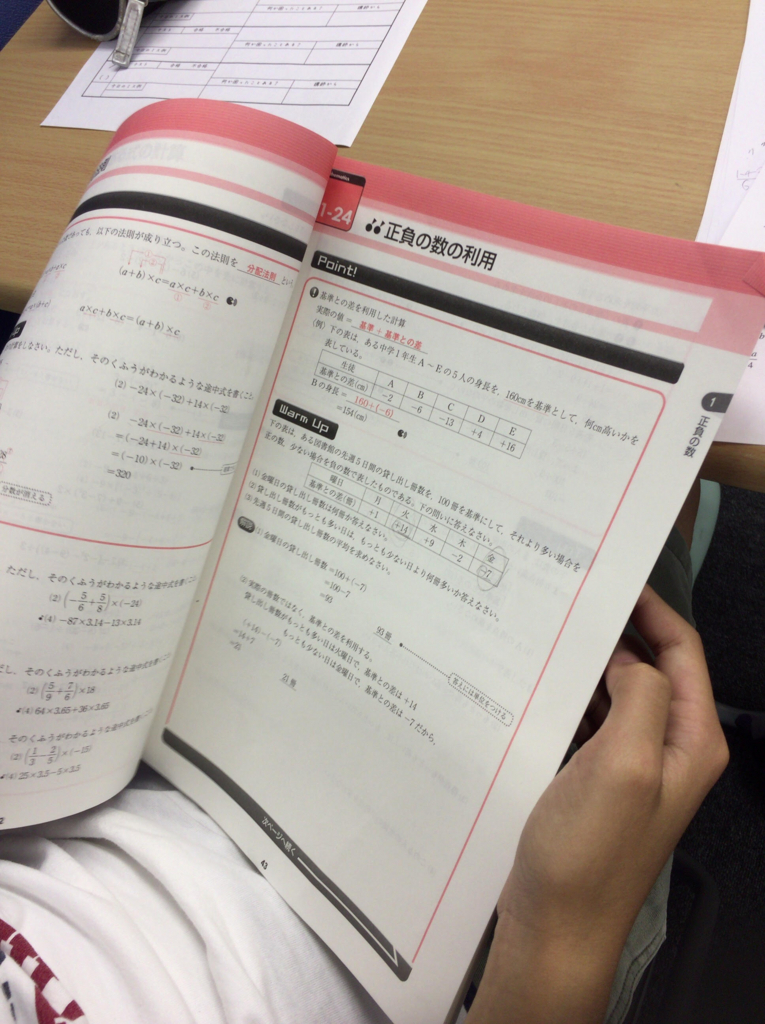 以下の法則が成り立つ。この法則を 分配法則 とい
(a+b)×c=a×c+b×c
a×c+b×c=(a+b)×c
しなさい。ただし，そのくふうがわかるような途中式を書くこと。
(2) −24×(−32)+14×(−32)
(2) −24×(−32)+14×(−32)
=(−24+14)×(−32)
=(−10)×(−32)
=320
分数が消える
ただし，そのくふうがわかるような途中式を書くこ
(2) (−5/6+5/8)×(−24)
(4) −87×3.14−13×3.14
だし，そのくふうがわかるような途中式を書くこ
(2) (5/9+7/6)×18
(4) 64×3.65+36×3.65
そのくふうがわかるような途中式を書くこ
(2) (1/3−2/5)×(−15)
(4) 25×3.5−5×3.5
1-24
正負の数の利用
Point!
基準との差を利用した計算
実際の値＝ 基準＋基準との差
(例) 下の表は，ある中学1年生A～Eの5人の身長を，160cmを基準として，何cm高いかを
表している。
生徒 A B C D E
基準との差(cm) −2 −6 −13 +4 +16
Bの身長＝ 160+(−6)
=154(cm)
Warm Up
下の表は，ある図書館の先週5日間の貸し出し冊数を，100冊を基準にして，それより多い場合を
正の数，少ない場合を負の数で表したものである。下の問いに答えなさい。
曜日 月 火 水 木 金
基準との差(冊) +1 +14 +9 −2 −7
(1) 金曜日の貸し出し冊数は何冊か答えなさい。
(2) 貸し出し冊数がもっとも多い日は，もっとも少ない日より何冊多いか答えなさい。
(3) 先週5日間の貸し出し冊数の平均を求めなさい。
(1) 金曜日の貸し出し冊数=100+(−7)
=100−7
=93
93冊
答えには単位をつける
(2) 実際の冊数ではなく，基準との差を利用する。
貸し出し冊数がもっとも多い日は火曜日で，基準との差は+14
もっとも少ない日は金曜日で，基準との差は−7だから，
(+14)−(−7)
=14+7
=21
21冊
次ページへ続く
43
1
正負の数